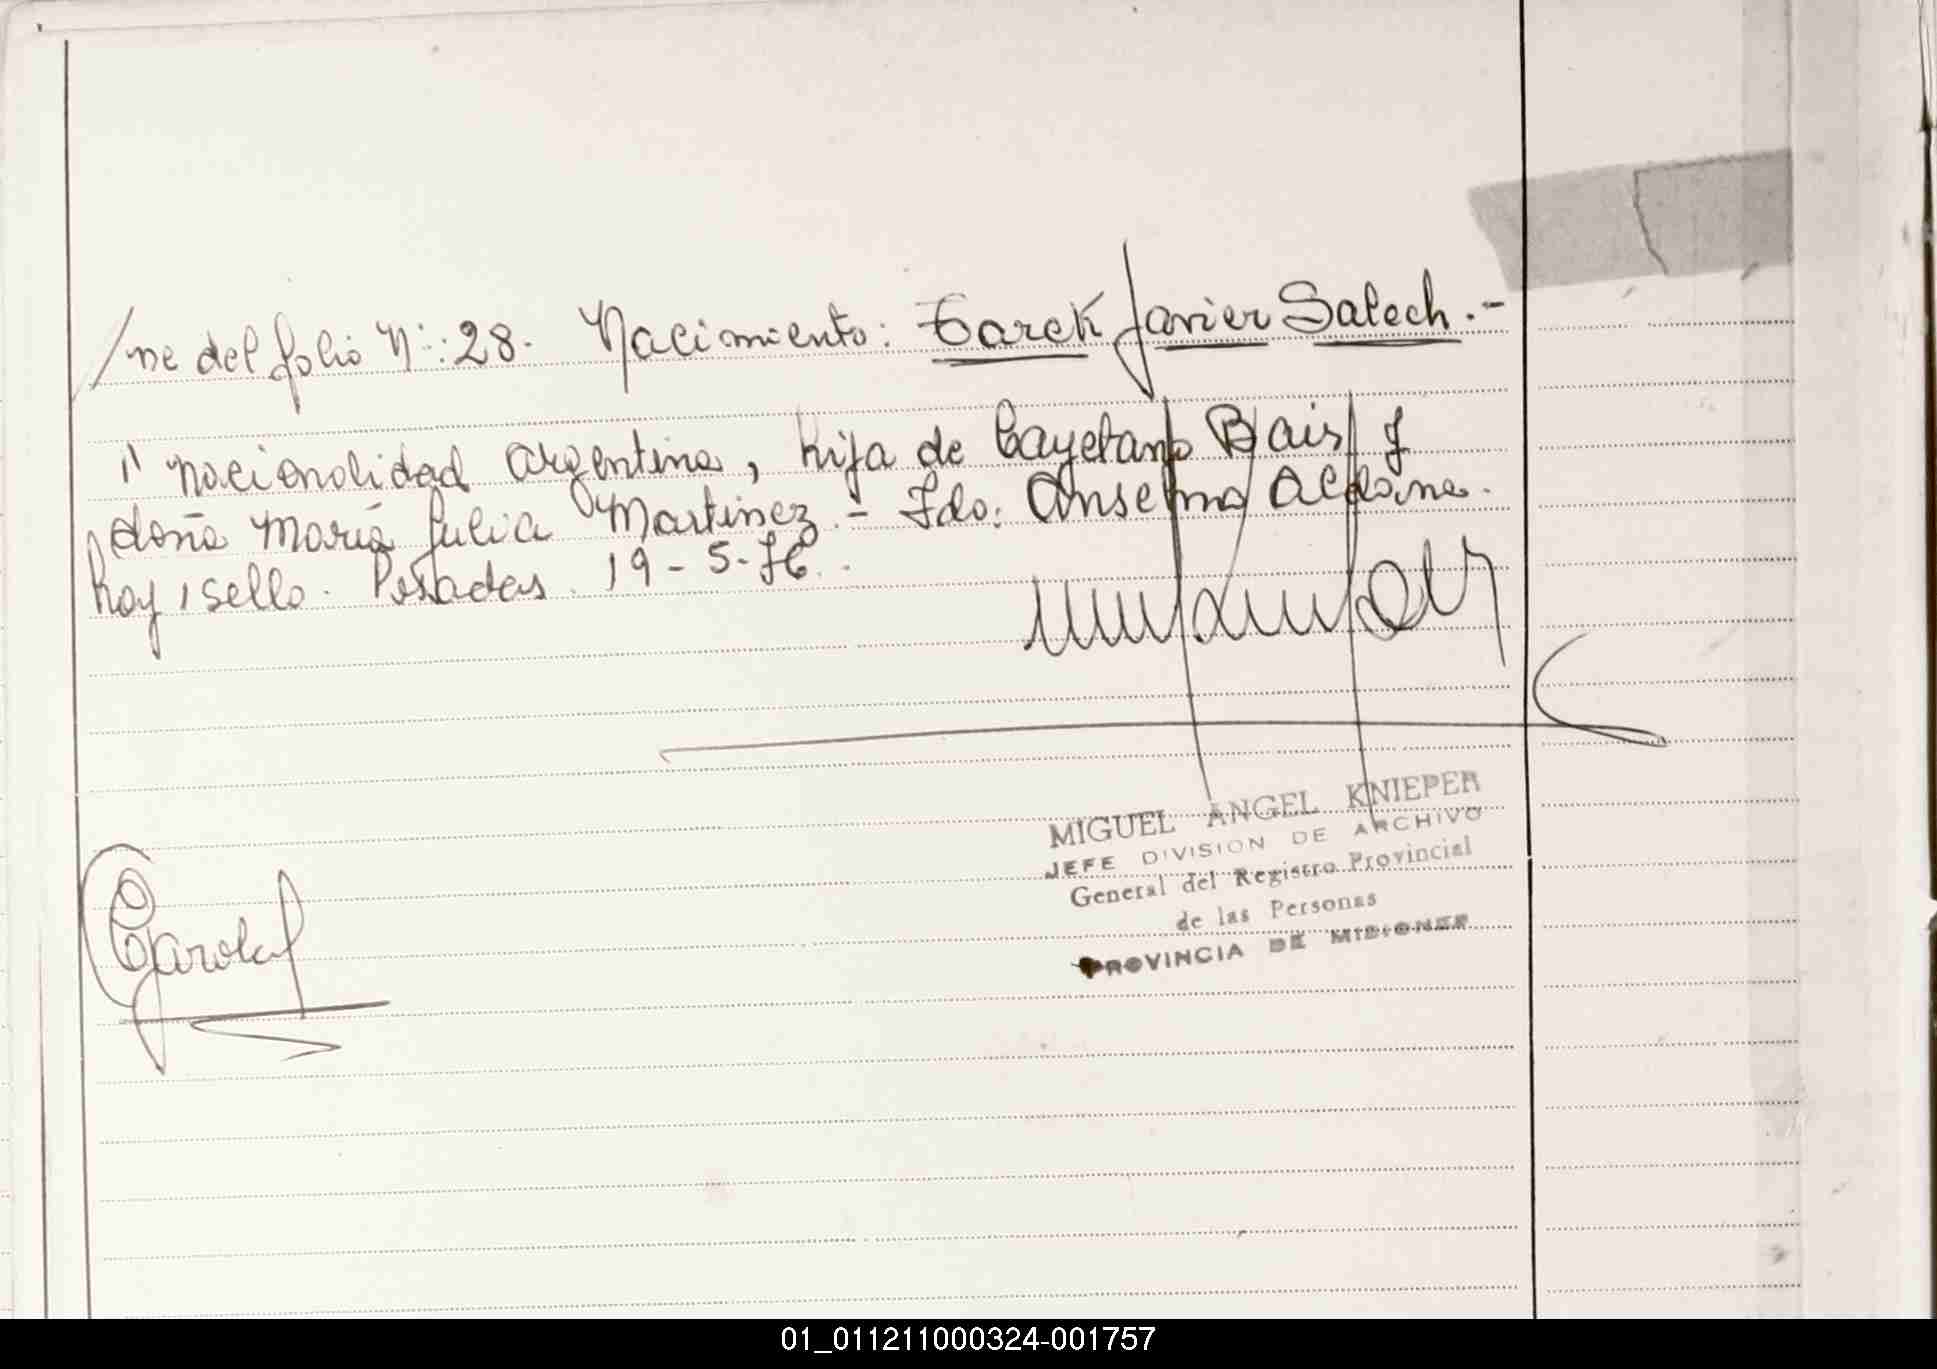 /ne del folio Nº: 28. Nacimiento: Tarek Javier Salech.-
nacionalidad argentina, hija de Cayetano Blais y
doña María Julia Martinez.- Fdo: Anselmo Aldoine.
hay, sello. Posadas. 19-5-76.
MIGUEL ANGEL KNIEPER
JEFE DIVISION DE ARCHIVO
General del Registro Provincial
de las Personas
PROVINCIA DE MISIONES
01_011211000324-001757